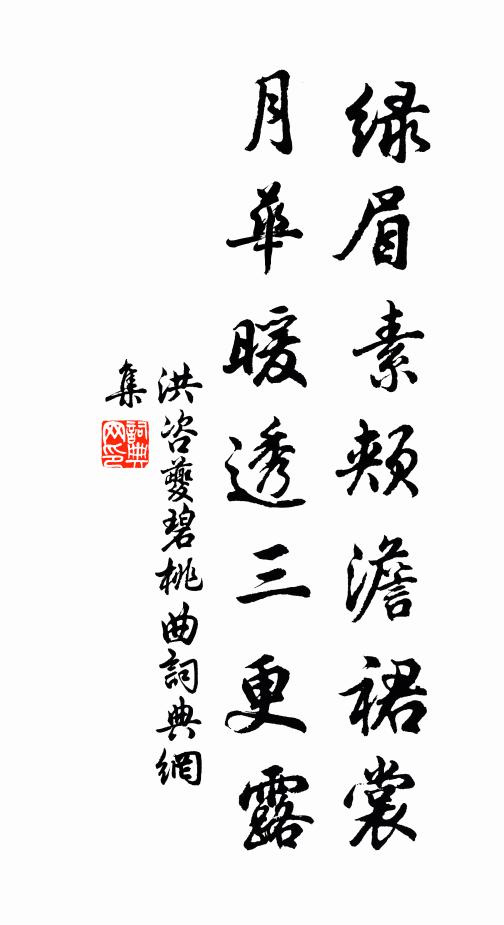 绿眉素頰澹裙裳
月華暖透三更露
洪咨夔碧桃曲詞典網
集
詞典网印